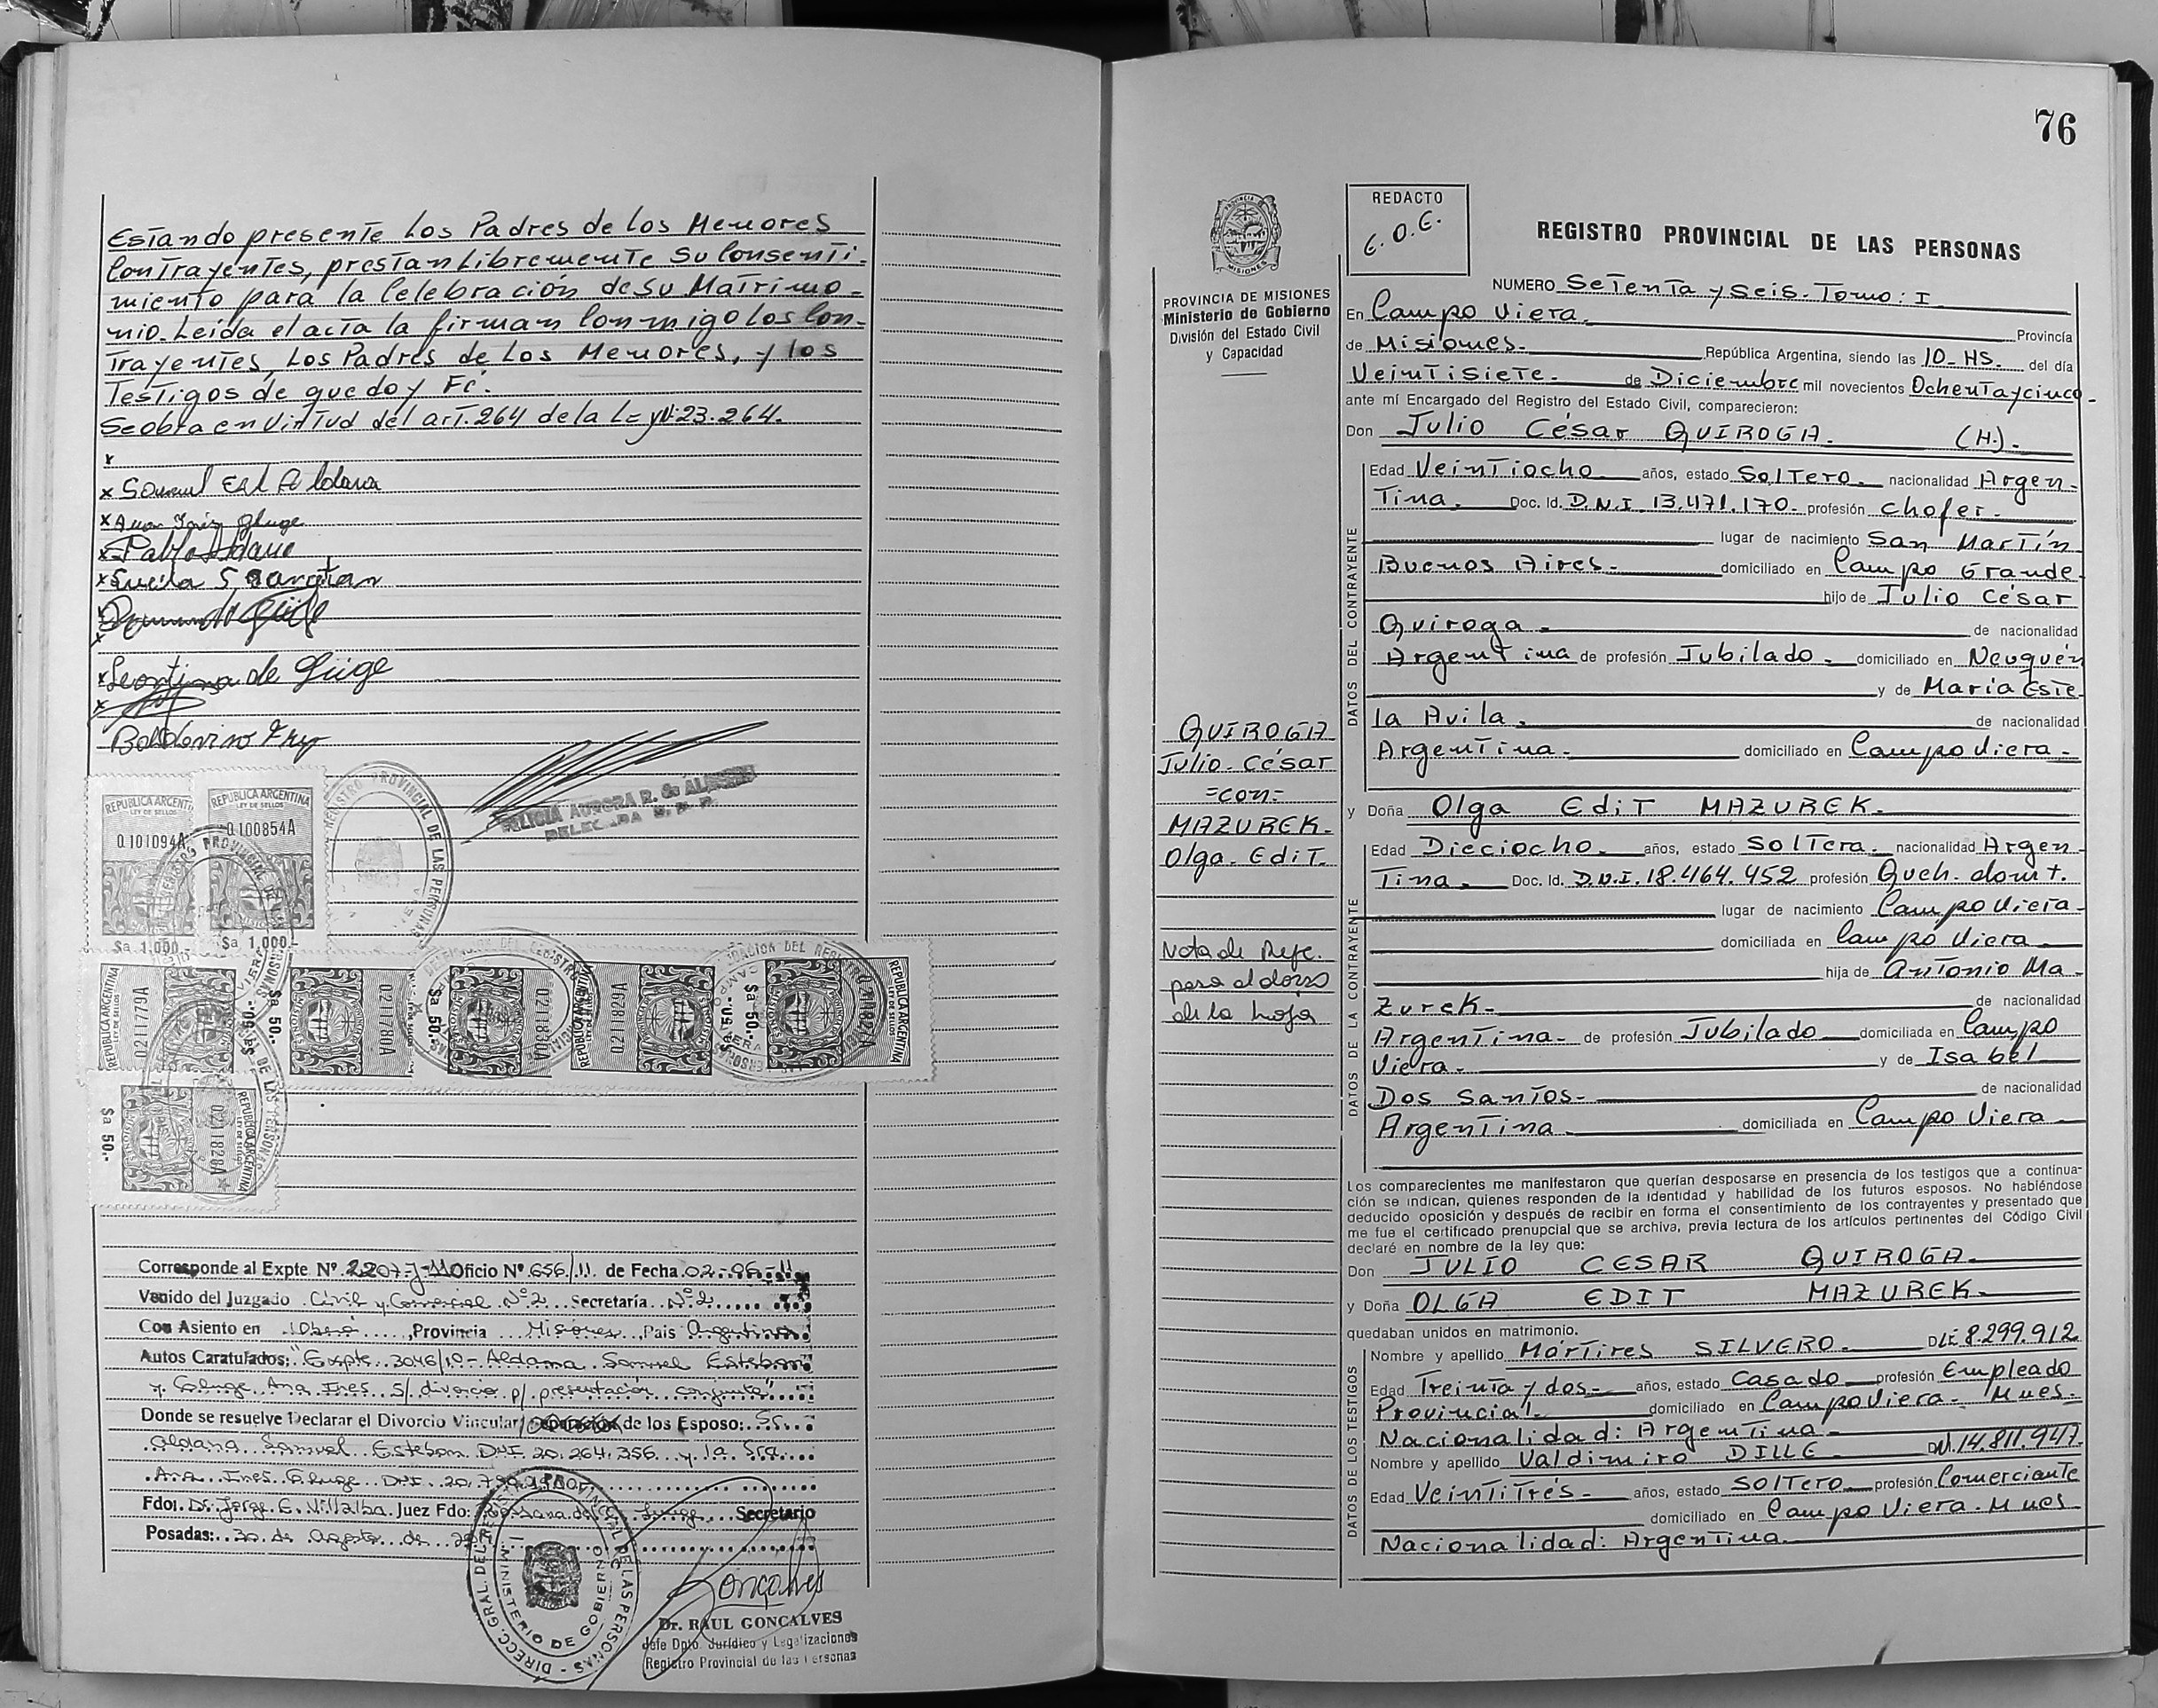 Estando presente Los Padres de los Menores
Contrayentes, prestan Libremente su Consenti-
miento para la Celebración de su Matrimo-
nio. Leída el acta la firman Conmigo los Con-
Trayentes, Los Padres de Los Menores, y los
Testigos de que doy Fé.
Se obra en Virtud del art. 264 de la Ley Nº 23.264.
x
x Samuel Est Aldana
x Ana Inés Gluge
x Pablo Aldana
x
x
x Leontina de Gluge
x
Boldovino
FELICIA AURORA R. de
DELEGADA
REGISTRO PROVINCIAL DE LAS PERSONAS
REPUBLICA ARGENTINA
LEY DE SELLOS
0.101094A
$a 1.000.-
REPUBLICA ARGENTINA
LEY DE SELLOS
0.100854A
$a 1.000.-
REPUBLICA ARGENTINA
0211779A
$a 50.-
0211780A
$a 50.-
0211830A
$a 50.-
REPUBLICA ARGENTINA
$a 50.-
REPUBLICA ARGENTINA
$a 50.-
REPUBLICA ARGENTINA
0211828A
$a 50.-
Corresponde al Expte Nº 2207-J-11 Oficio Nº 656/11 de Fecha 02-06-11
Venido del Juzgado Civil y Comercial Nº 2 Secretaría Nº 2
Con Asiento en Oberá, Provincia Misiones, País Argentina
Autos Caratulados: "Expte. 3046/10 - Aldana Samuel Esteban
y Gluge Ana Ines s/ divorcio p/ presentación conjunta"
Donde se resuelve Declarar el Divorcio Vincular/ de los Esposo: Sr.
Aldana Samuel Esteban DNI 20.264.356 y la Sra.
Ana Ines Gluge DNI 20.
Fdo: Dr. Jorge E. Villalba Juez Fdo: Secretario
Posadas: 30 de Agosto de
DIRECC. GRAL. DEL REG. PROVINCIAL DE LAS PERSONAS
MINISTERIO DE GOBIERNO
Gonçalves
Dr. RAUL GONCALVES
Jefe Dpto. Jurídico y Legalizaciones
Registro Provincial de las Personas
76
MISIONES
PROVINCIA DE MISIONES
Ministerio de Gobierno
División del Estado Civil
y Capacidad
QUIROGA
Julio César
=con=
MAZUREK
Olga Edit.
Nota de Refe.
pasa al dorso
de la hoja
REDACTO
C.O.E.
REGISTRO PROVINCIAL DE LAS PERSONAS
NUMERO Setenta y Seis. Tomo: I
En Campo Viera. Provincia
de Misiones. República Argentina, siendo las 10 HS. del día
Veintisiete. de Diciembre mil novecientos Ochenta y cinco.
ante mí Encargado del Registro del Estado Civil, comparecieron:
Don Julio César QUIROGA. (H.).
DATOS DEL CONTRAYENTE
Edad Veintiocho años, estado Soltero. nacionalidad Argen-
Tina. Doc. Id. D.N.I. 13.471.170. profesión Chofer.
lugar de nacimiento San Martín
Buenos Aires. domiciliado en Campo Grande.
hijo de Julio César
Quiroga. de nacionalidad
Argentina de profesión Jubilado. domiciliado en Neuquén
y de María Este-
la Avila. de nacionalidad
Argentina. domiciliado en Campo Viera.
y Doña Olga Edit MAZUREK.
DATOS DE LA CONTRAYENTE
Edad Dieciocho. años, estado Soltera. nacionalidad Argen-
Tina. Doc. Id. D.N.I. 18.464.452 profesión Queh. domt.
lugar de nacimiento Campo Viera.
domiciliada en Campo Viera
hija de Antonio Ma-
zurek. de nacionalidad
Argentina. de profesión Jubilado domiciliada en Campo
Viera. y de Isabel
Dos Santos. de nacionalidad
Argentina. domiciliada en Campo Viera
Los comparecientes me manifestaron que querían desposarse en presencia de los testigos que a continua-
ción se indican, quienes responden de la identidad y habilidad de los futuros esposos. No habiéndose
deducido oposición y después de recibir en forma el consentimiento de los contrayentes y presentado que
me fue el certificado prenupcial que se archiva, previa lectura de los artículos pertinentes del Código Civil
declaré en nombre de la ley que:
Don JULIO CESAR QUIROGA.
y Doña OLGA EDIT MAZUREK.
quedaban unidos en matrimonio.
DATOS DE LOS TESTIGOS
Nombre y apellido Mártires SILVERO. DLE 8.299.912
Edad Treinta y dos. años, estado Casado profesión Empleado
Provincial. domiciliado en Campo Viera. Mnes.
Nacionalidad: Argentina
Nombre y apellido Valdimiro DILLE. DNI. 14.811.947.
Edad Veintitrés. años, estado Soltero profesión Comerciante
domiciliado en Campo Viera. Mnes
Nacionalidad: Argentina